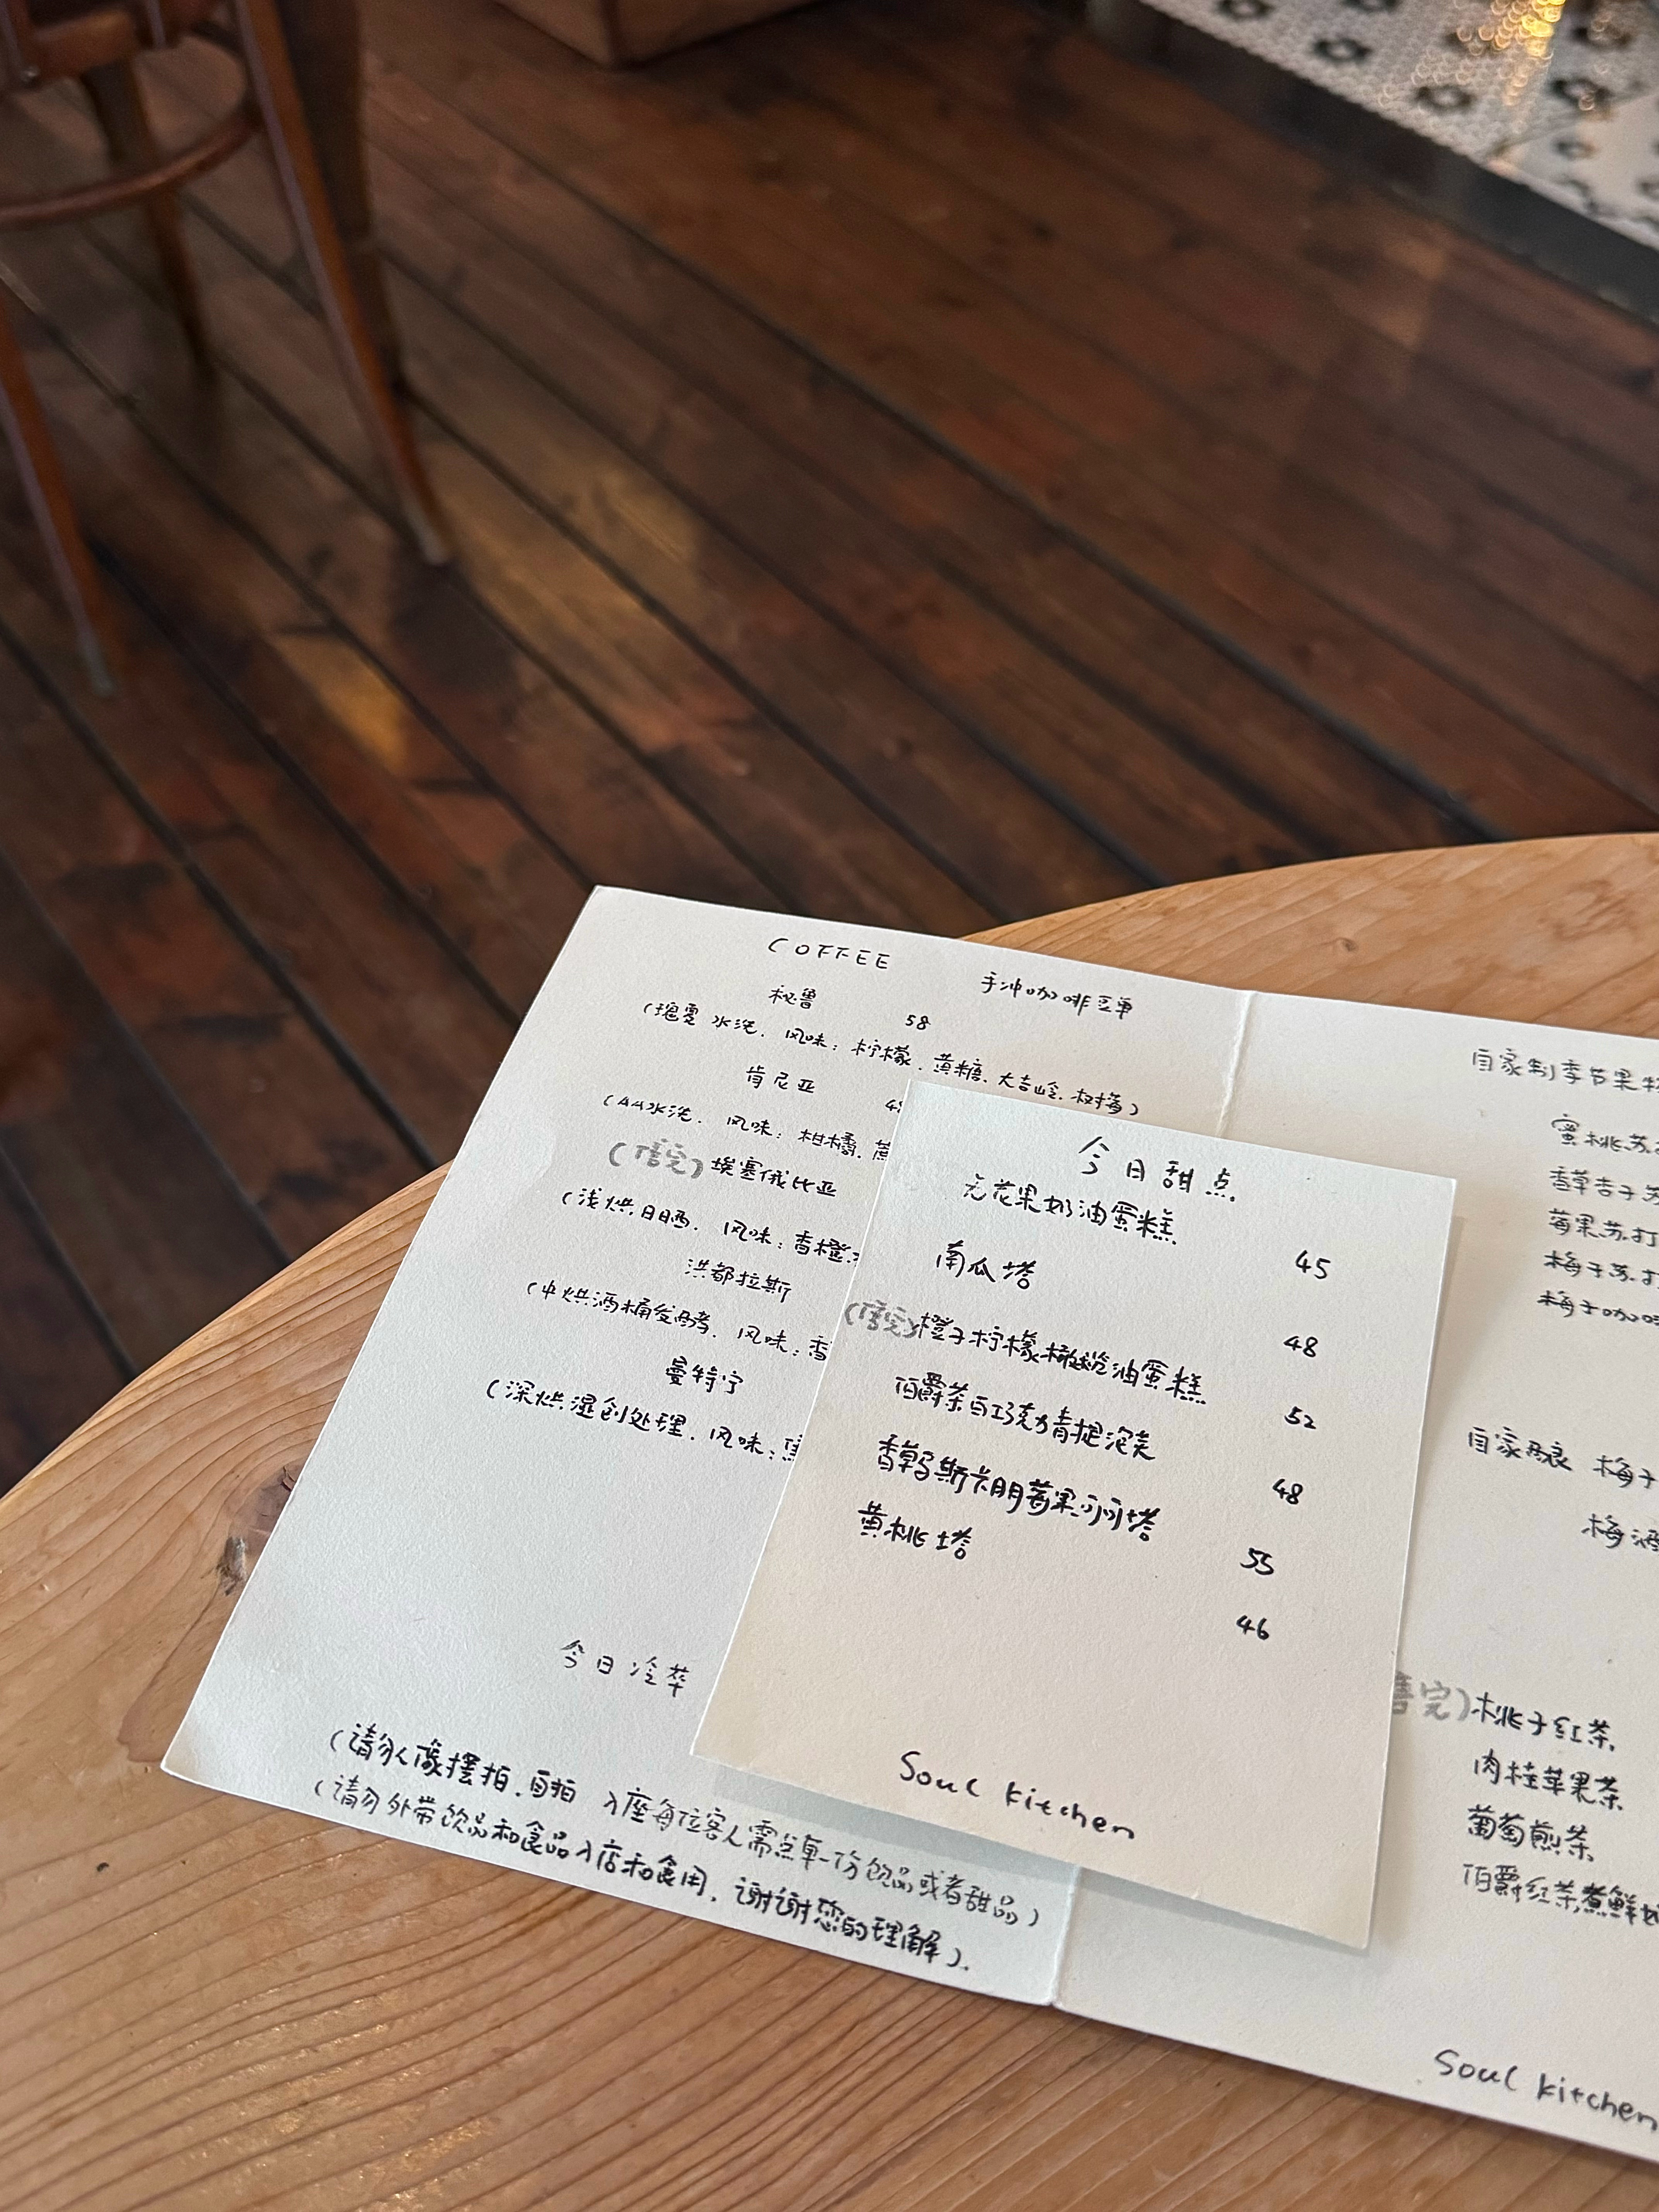 COFFEE
手冲咖啡豆单
秘鲁 58
(瑰夏 水洗. 风味: 柠檬. 黄糖. 大吉岭. 树莓)
肯尼亚
(AA水洗. 风味: 柑橘.
(售完) 埃塞俄比亚
(浅烘. 日晒. 风味: 香橙.
洪都拉斯
(中烘酒桶发酵. 风味: 香
曼特宁
(深烘湿刨处理. 风味:
今日冷萃
(请勿人像摆拍. 自拍 入座每位客人需点单一份饮品或者甜品)
(请勿外带饮品和食品入店和食用. 谢谢您的理解).
今日甜点
无花果奶油蛋糕 45
南瓜塔 48
(售完) 橙子柠檬橄榄油蛋糕 52
伯爵茶白巧克力青提泡芙 48
香草马斯卡朋莓果可可塔 55
黄桃塔 46
Soul kitchen
自家制季节果
蜜桃苏
香草杏子苏
莓果苏打
梅子苏打
梅子咖啡
自家酿 梅子
梅酒
售完) 桃子红茶
肉桂苹果茶
葡萄煎茶
伯爵红茶煮鲜奶
Soul kitchen